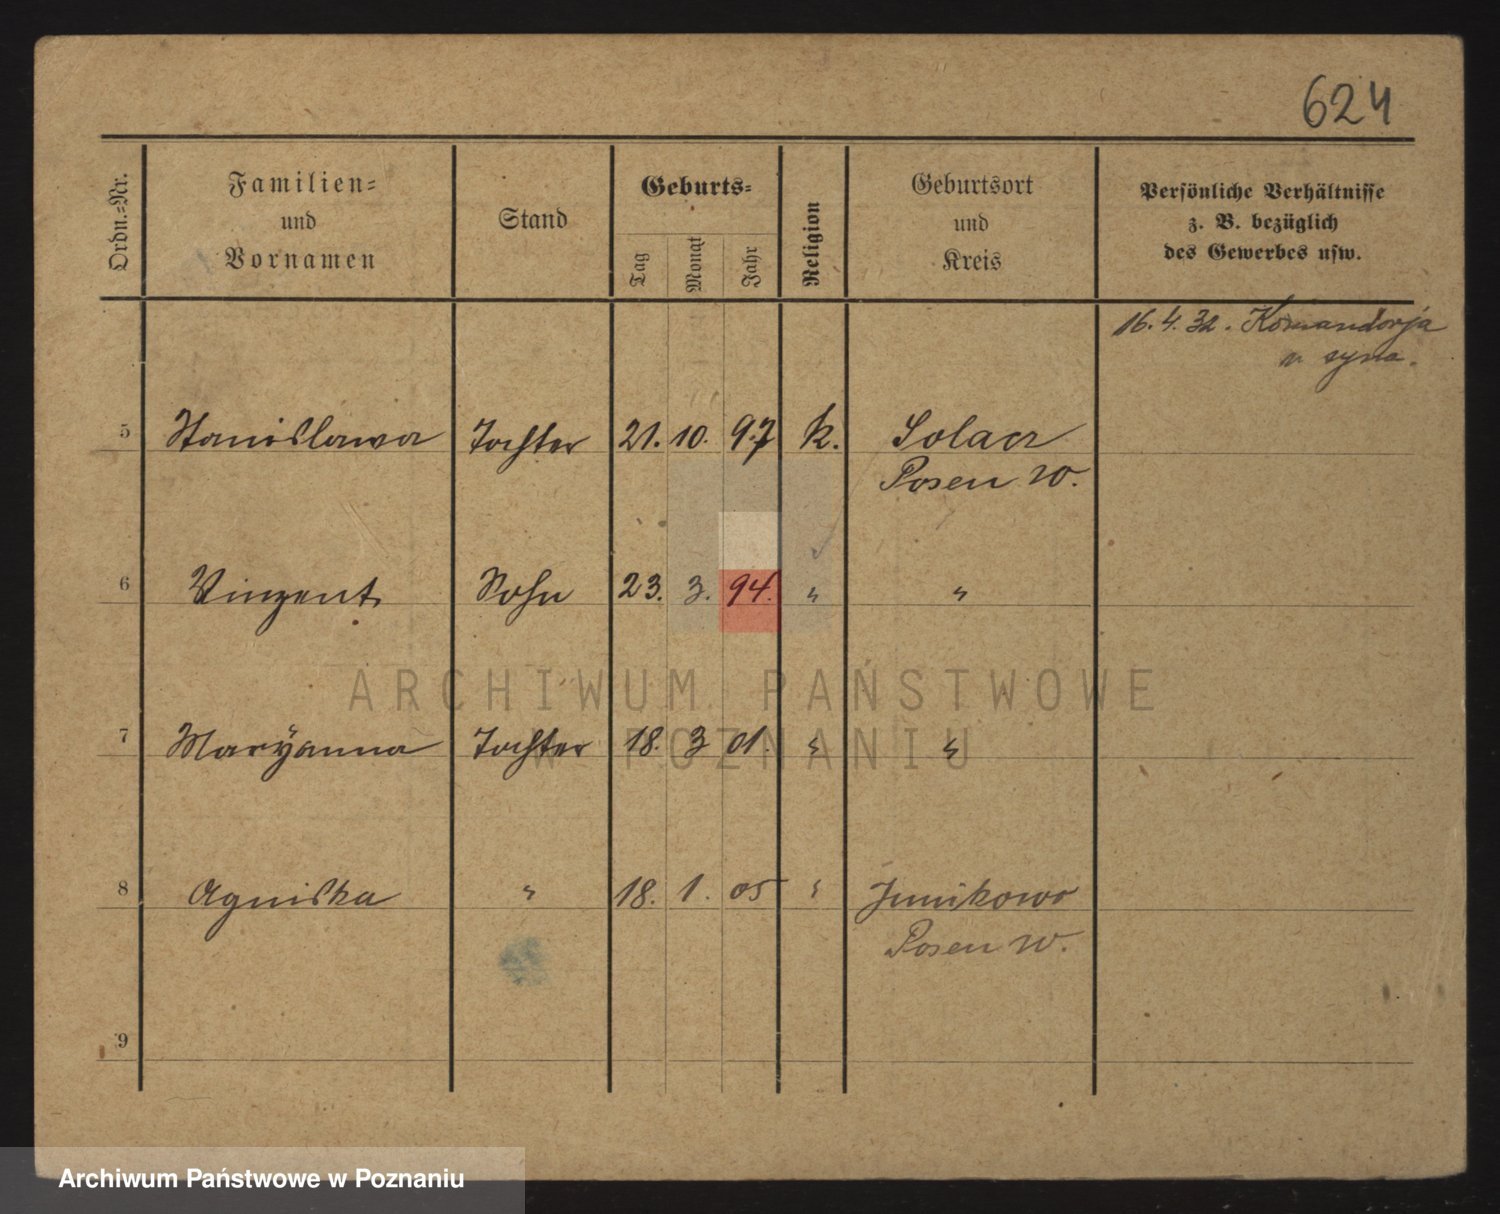 624
Ordn.=Nr.
Familien=
und
Vornamen
Stand
Geburts=
Tag
Monat
Jahr
Religion
Geburtsort
und
Kreis
Persönliche Verhältnisse
z. B. bezüglich
des Gewerbes usw.
16.4.32. Komandorja
u syna.
5 Stanislawa Tochter 21. 10. 97 k. Solacz
Posen W.
6 Vinzent Sohn 23. 3. 94. " "
7 Maryanna Tochter 18. 3 01. " "
8 Agniska " 18. 1. 05 " Junikowo
Posen W.
9
ARCHIWUM PAŃSTWOWE
W POZNANIU
Archiwum Państwowe w Poznaniu